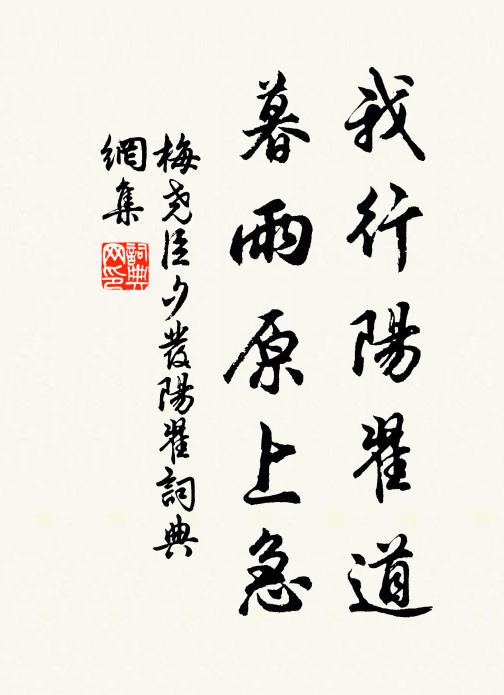 我行陽翟道
暮雨原上急
梅堯臣夕發陽翟詞典
網集
詞典
网印